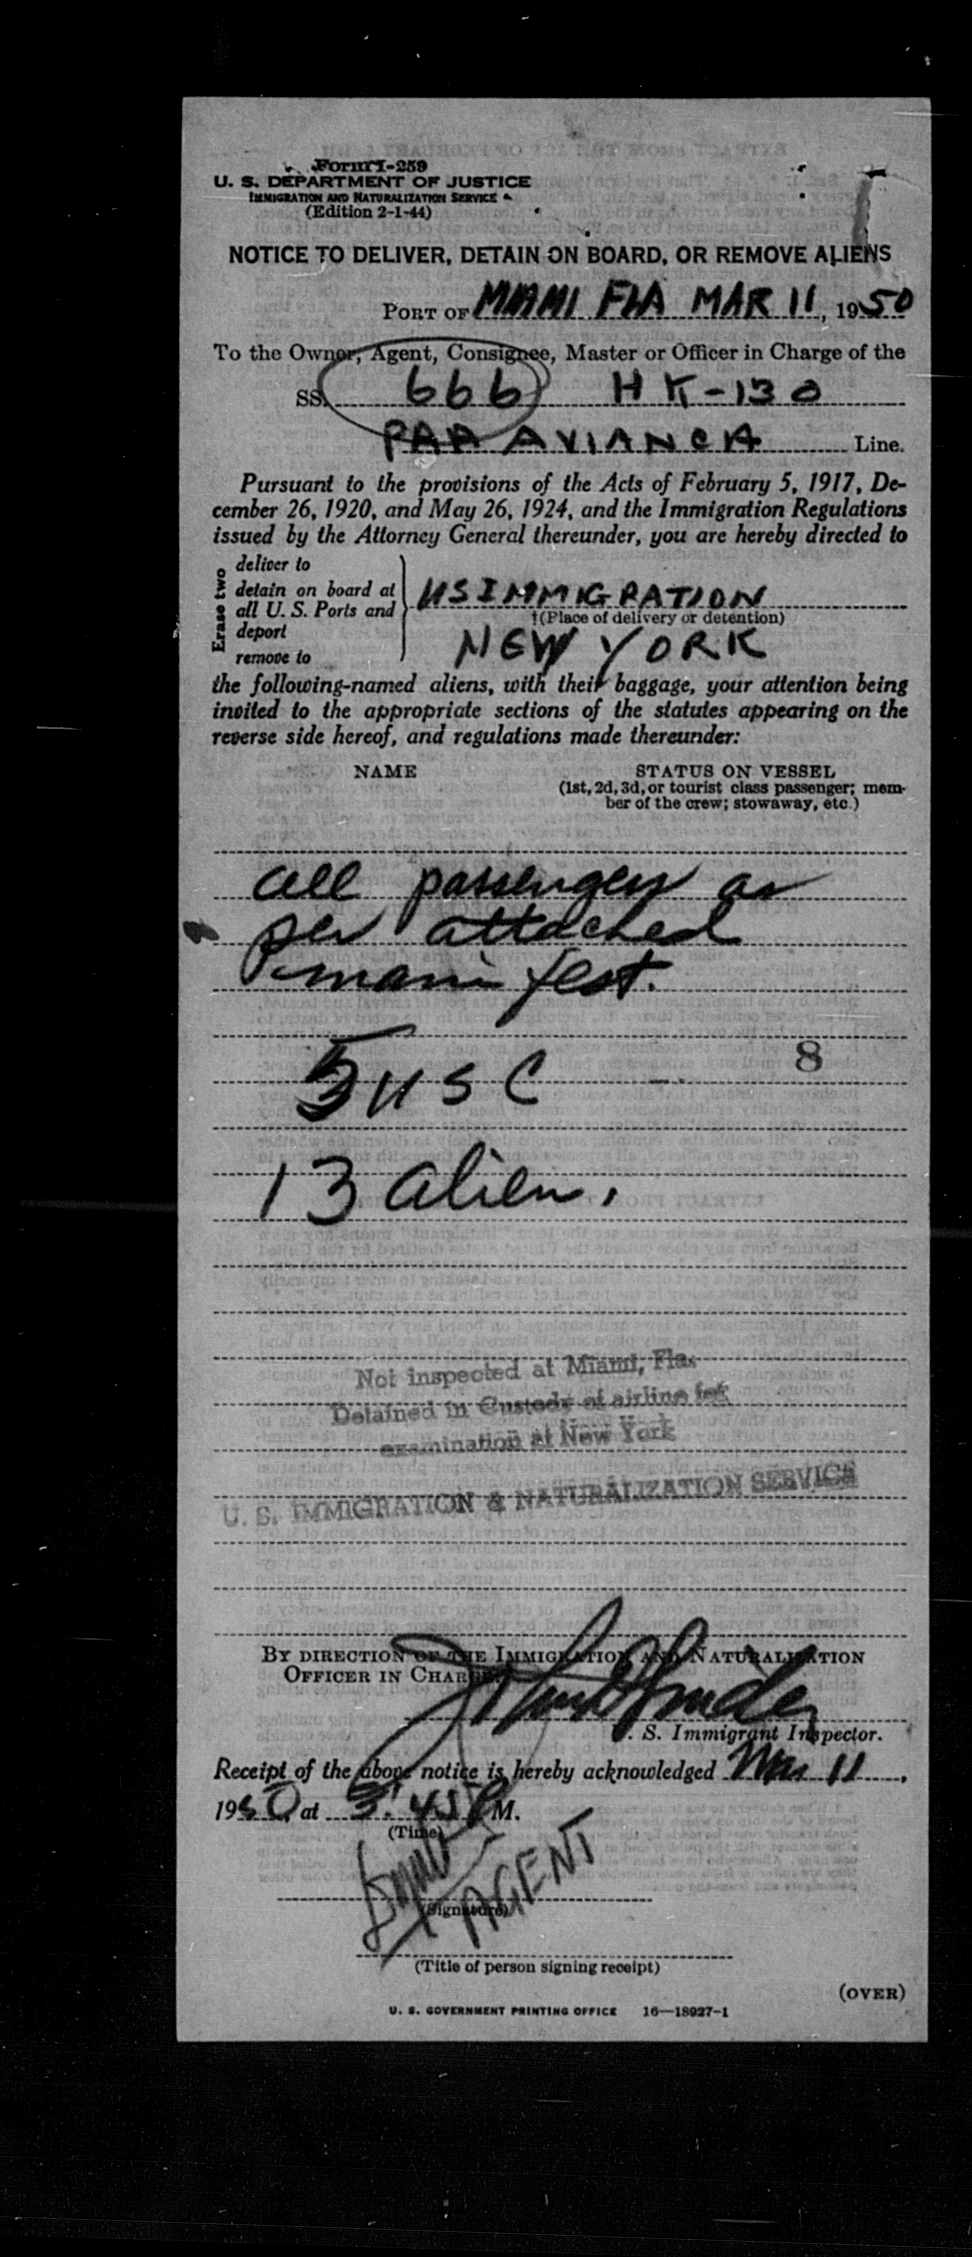 Form I-259
U. S. DEPARTMENT OF JUSTICE
IMMIGRATION AND NATURALIZATION SERVICE
(Edition 2-1-44)
NOTICE TO DELIVER, DETAIN ON BOARD, OR REMOVE ALIENS
PORT OF MIAMI FLA MAR 11, 1950
To the Owner, Agent, Consignee, Master or Officer in Charge of the
SS. 666 HK-130
PAA AVIANCA Line.
Pursuant to the provisions of the Acts of February 5, 1917, De-
cember 26, 1920, and May 26, 1924, and the Immigration Regulations
issued by the Attorney General thereunder, you are hereby directed to
Erase two
deliver to
detain on board at
all U. S. Ports and
deport
remove to
US IMMIGRATION
†(Place of delivery or detention)
NEW YORK
the following-named aliens, with their baggage, your attention being
invited to the appropriate sections of the statutes appearing on the
reverse side hereof, and regulations made thereunder:
NAME
STATUS ON VESSEL
(1st, 2d, 3d, or tourist class passenger; mem-
ber of the crew; stowaway, etc.)
all passengers as
per attached
manifest.
5 USC - 8
13 alien.
Not inspected at Miami, Fla.
Detained in Custody of airline for
examination at New York
U. S. IMMIGRATION & NATURALIZATION SERVICE
BY DIRECTION OF THE IMMIGRATION AND NATURALIZATION
OFFICER IN CHARGE.
U. S. Immigrant Inspector.
Receipt of the above notice is hereby acknowledged Mar 11,
1950, at 3:45 PM.
(Time)
(Signature)
AGENT
(Title of person signing receipt)
(OVER)
U. S. GOVERNMENT PRINTING OFFICE 16—18927-1